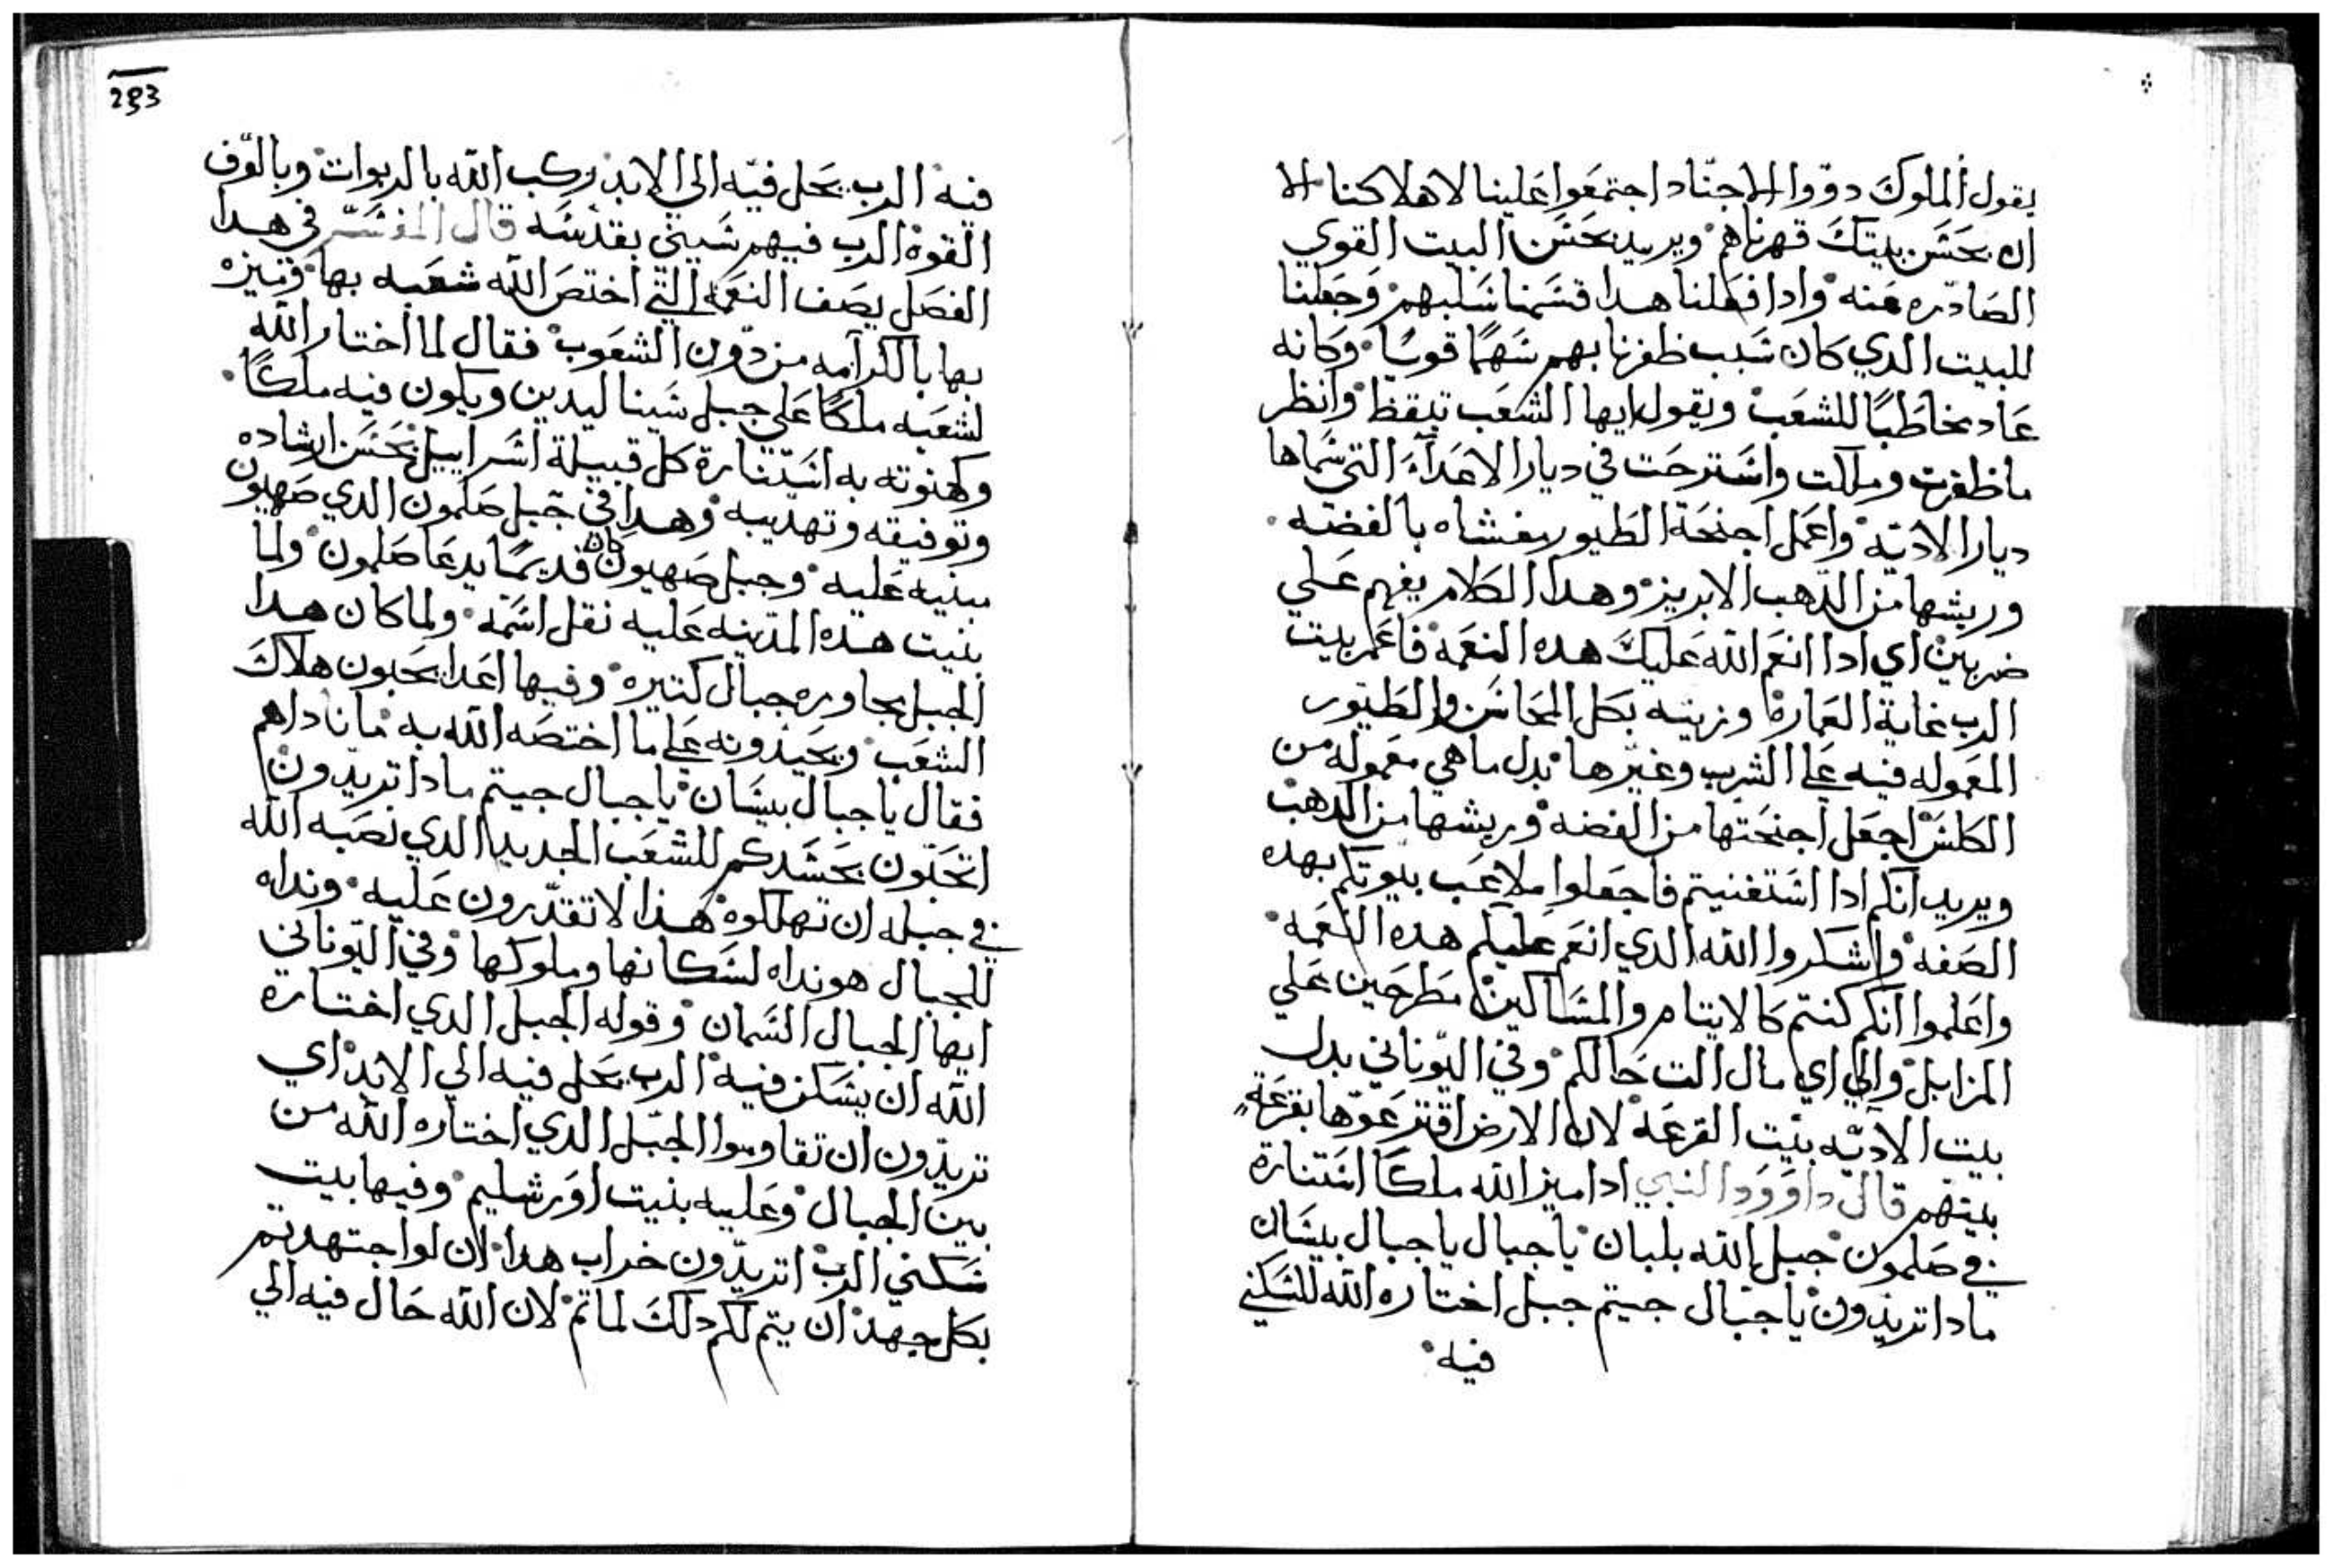 يقول الملوك دووا الاجناد اجتمعوا علينا لاهلاكنا الا
ان بحسن بيتك قهرناهم ويريد بحسن البيت القوي
الصادره منه وادا فعلنا هدا قسمنا سلبهم وجعلنا
للبيت الدي كان سبب ظفرنا بهم سهمًا قويًا وكانه
عاد مخاطبًا للشعب ويقول ايها الشعب تيقظ وانظر
ما ظفرت وملكت واسترحت في ديار الاعدآء التي سماها
ديار الاديه واعمل اجنحة الطيور مغشاه بالفضه
وريشها من الدهب الابريز وهدا الكلام يفهم علي
ضربين اي ادا انعم الله عليك هده النعمه فاعمر بيت
الرب غاية العماره وزينه بكل المحاسن والطيور
المعموله فيه علي الشرب وغيرها بدل ما هي معموله من
الكلس اجعل اجنحتها من الفضه وريشها من الدهب
ويريد انكم ادا استغنيتم فاجعلوا ملاعب بيوتكم بهده
الصفه واشكروا الله الدي انعم عليكم هده النعمه
واعلموا انكم كنتم كالايتام والمساكين مطرحين علي
المزابل والي اي مال الت حالكم وفي اليوناني بدل
بيت الاديه بيت القرعه لان الارض اقترعوها بقرعة
بينهم قال داوود النبي ادا ميز الله ملكًا استنارة
في صلمون جبل الله بلبان يا جبال يا جبال بيسان
مادا تريدون يا جبال جيتم جبل اختاره الله للسكني
فيه
293
فيه الرب يحل فيه الي الابد ركب الله بالربوات وبالوف
القوه الرب فيهم سيني بقدسه قال المفسر في هدا
الفصل يصف النعمه التي اختص الله شعبه بها وتميزه
بها بالكرامه من دون الشعوب فقال لما اختار الله
لشعبه ملكًا علي جبل سينا ليدين ويكون فيه ملكًا
وكهنوته به استنارة كل قبيلة اسراييل بحسن ارشاده
وتوفيقه وتهديبه وهدا في جبل صلمون الدي صهيون
مبنيه عليه وجبل صهيون كان قديمًا يدعا صلمون ولما
بنيت هده المدينه عليه نقل اسمه ولما كان هدا
الجبل يجاوره جبال كتيره وفيها اعدا يحبون هلاك
الشعب ويحسدونه علي ما اختصه الله به ما ناداهم
فقال يا جبال بيسان يا جبال جيتم مادا تريدون
اتحبون بحسدكم للشعب الجديد الدي نصبه الله
في جبله ان تهلكوه هدا لا تقدرون عليه ونداه
للجبال هو نداه لسكانها وملوكها وفي اليوناني
ايها الجبال السمان وقوله الجبل الدي اختاره
الله ان يسكن فيه الرب يحل فيه الي الابد اي
تريدون ان تقاوموا الجبل الدي اختاره الله من
بين الجبال وعليه بنيت اورشليم وفيها بيت
سكني الرب اتريدون خراب هدا لان لو اجتهدتم
بكل جهد ان يتم لكم دلك لما تم لان الله حال فيه الي